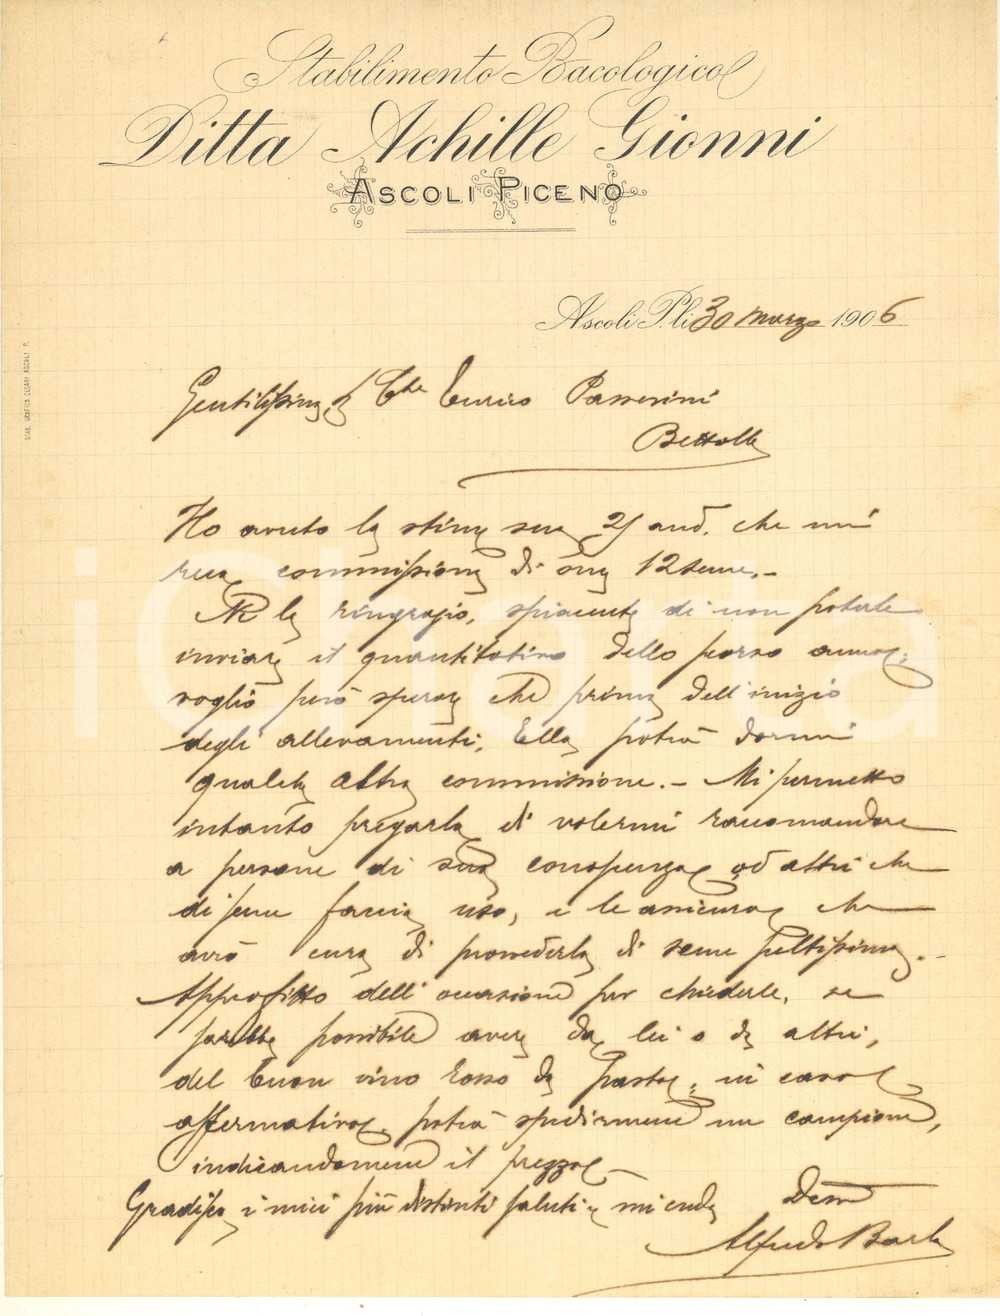 Stabilimento Bacologico
Ditta Achille Gionni
ASCOLI PICENO
Ascoli P. li 30 marzo 1906
STAB. GRAFICO CESARI ASCOLI P.
Enrico Passerini
Bettolle
Ho avuto la stima sua 29 and. che mi
reca commissione di onc 12 seme.-
Ne la ringrazio, spiacente di non poterle
inviare il quantitativo dello scorso anno;
voglio però sperare che prima dell'inizio
degli allevamenti, Ella potrà darmi
qualche altra commissione.- Mi permetto
intanto pregarla di volermi raccomandare
a persone di sua conoscenza od altri che
di seme faccia uso, e le assicuro che
avrò cura di provvederla di seme sceltissimo.-
Approfitto dell'occasione per chiederle, se
sarebbe possibile avere da lei o da altri,
del buon vino rosso da pasto; in caso
affermativo, potrà spedirmene un campione,
indicandomene il prezzo.-
Gradisca i miei più distinti saluti e mi creda Devmo
Alfredo
iCharta